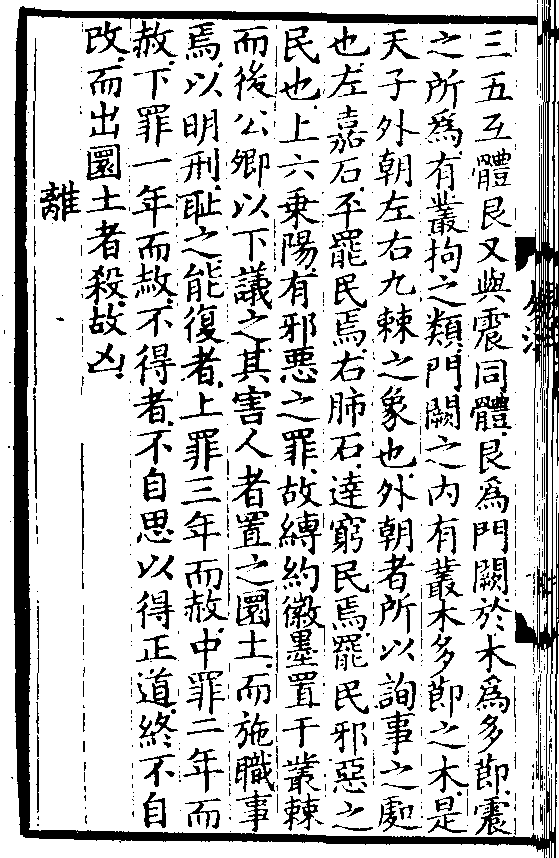 三五互體艮又與震同體艮爲門闕於木爲多節震
之所爲有叢拘之類門闕之内有叢木多節之木是
天子外朝左右九棘之象也外朝者所以詢事之處
也左嘉石平罷民焉右肺石達窮民焉罷民邪惡之
民也上六乗陽有邪悪之罪故縛約徽墨置于叢棘
而後公卿以下議之其害人者置之圜土而施職事
焉以明刑恥之能復者上罪三年而赦中罪二年而
赦下罪一年而赦不得者不自思以得正道終不自
改而出圜土者殺故凶
離